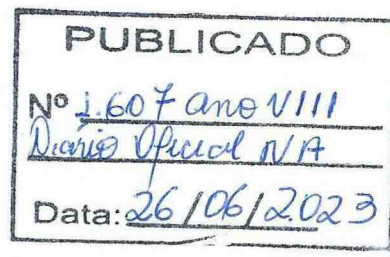 PUBLICADO
Nº 1.607 ano VIII
Diário Oficial N/A
Data: 26/06/2023